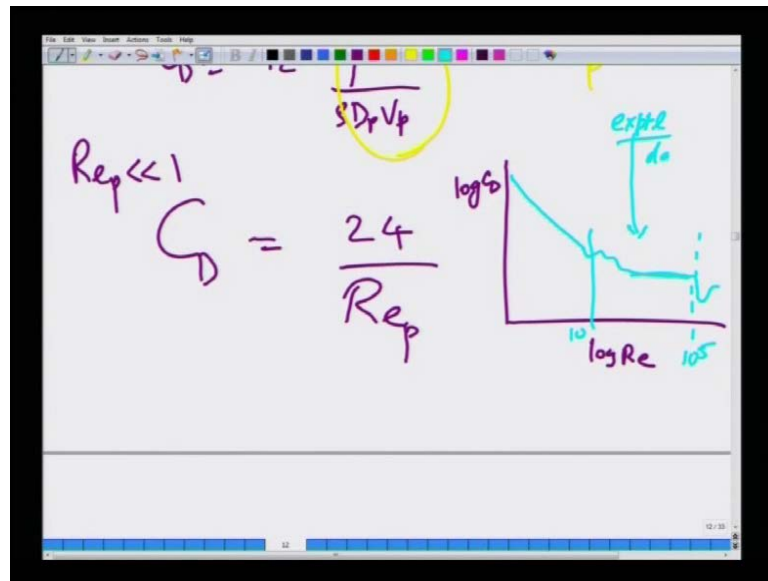 File Edit View Insert Actions Tools Help
ρDpVp
p
Rep<<1
CD = 24 / Rep
exptl
log CD
10
log Re
10^5
12 / 33
12